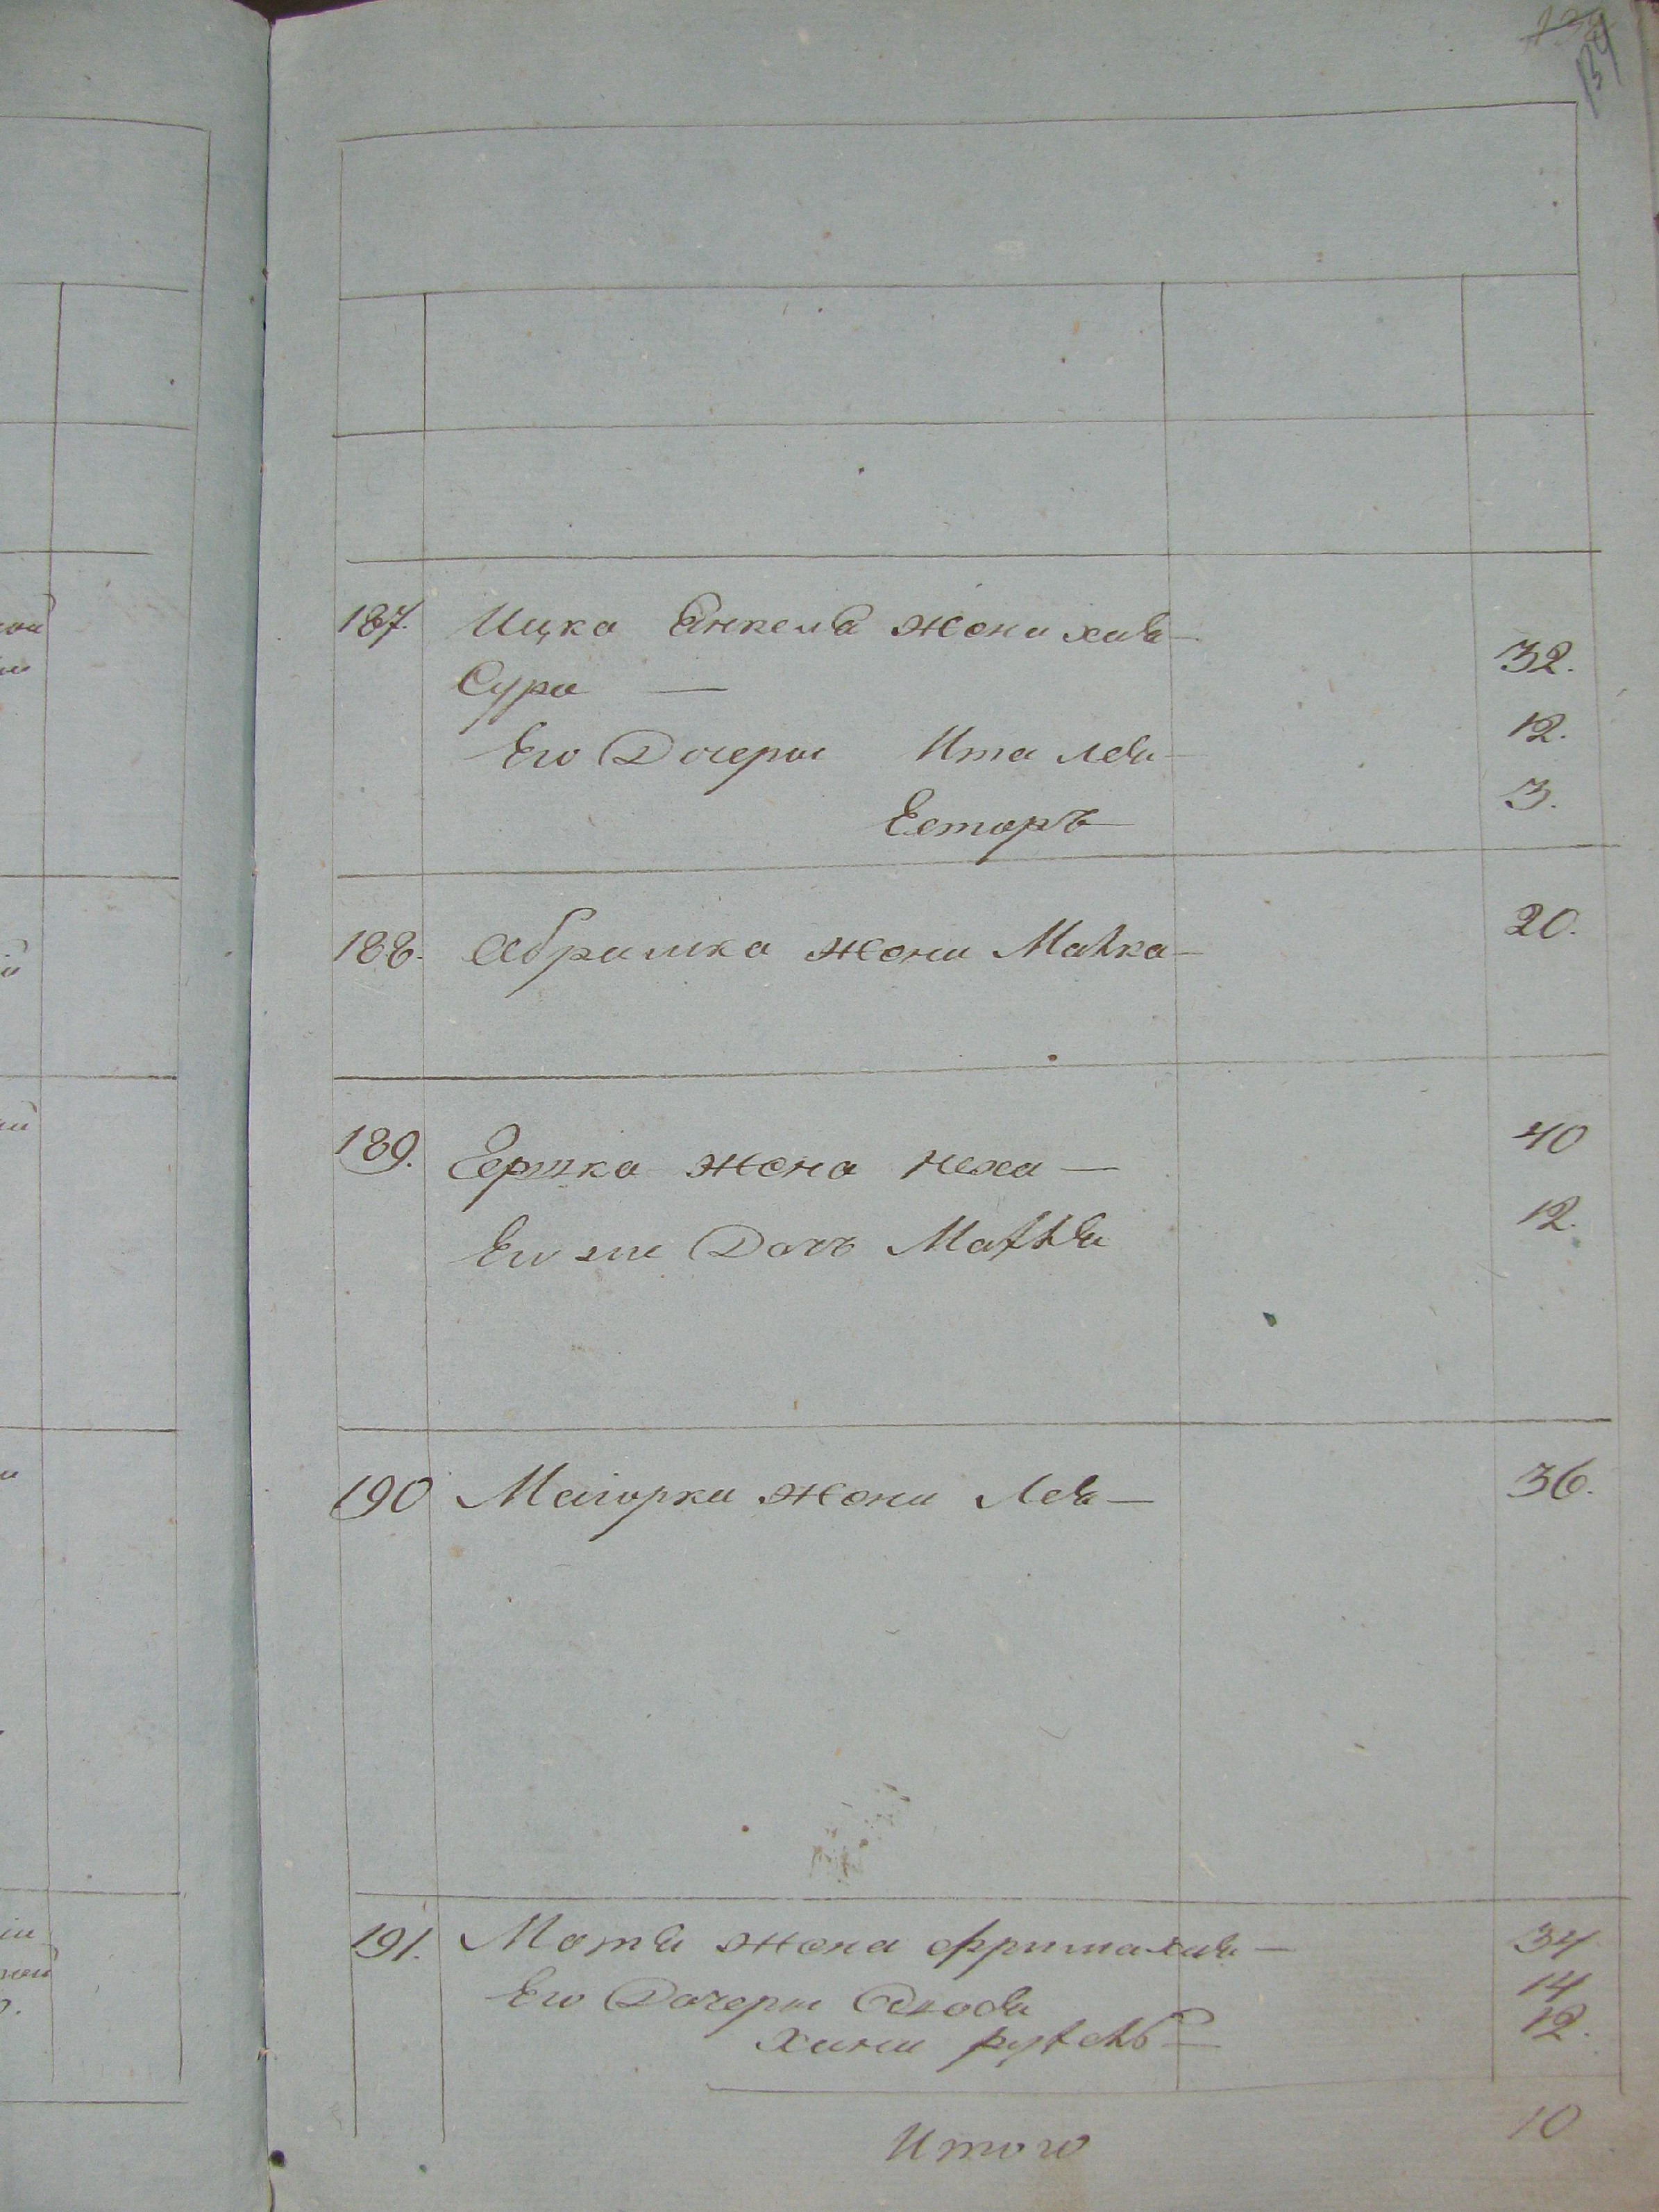 134
187. Ицка Янкеля жена хая 32.
Сура —
Его Дочери Ита Лея 12.
Естеръ 3.
188. Абрамка жена Малка — 20.
189. Ершка жена неха — 40
Его же Дочь Матля 12.
190 Маіорка жена Лея — 36.
191. Мотя жена фрима хая — 34
Его Дочери 14
Хана рухель — 12.
Итого 10